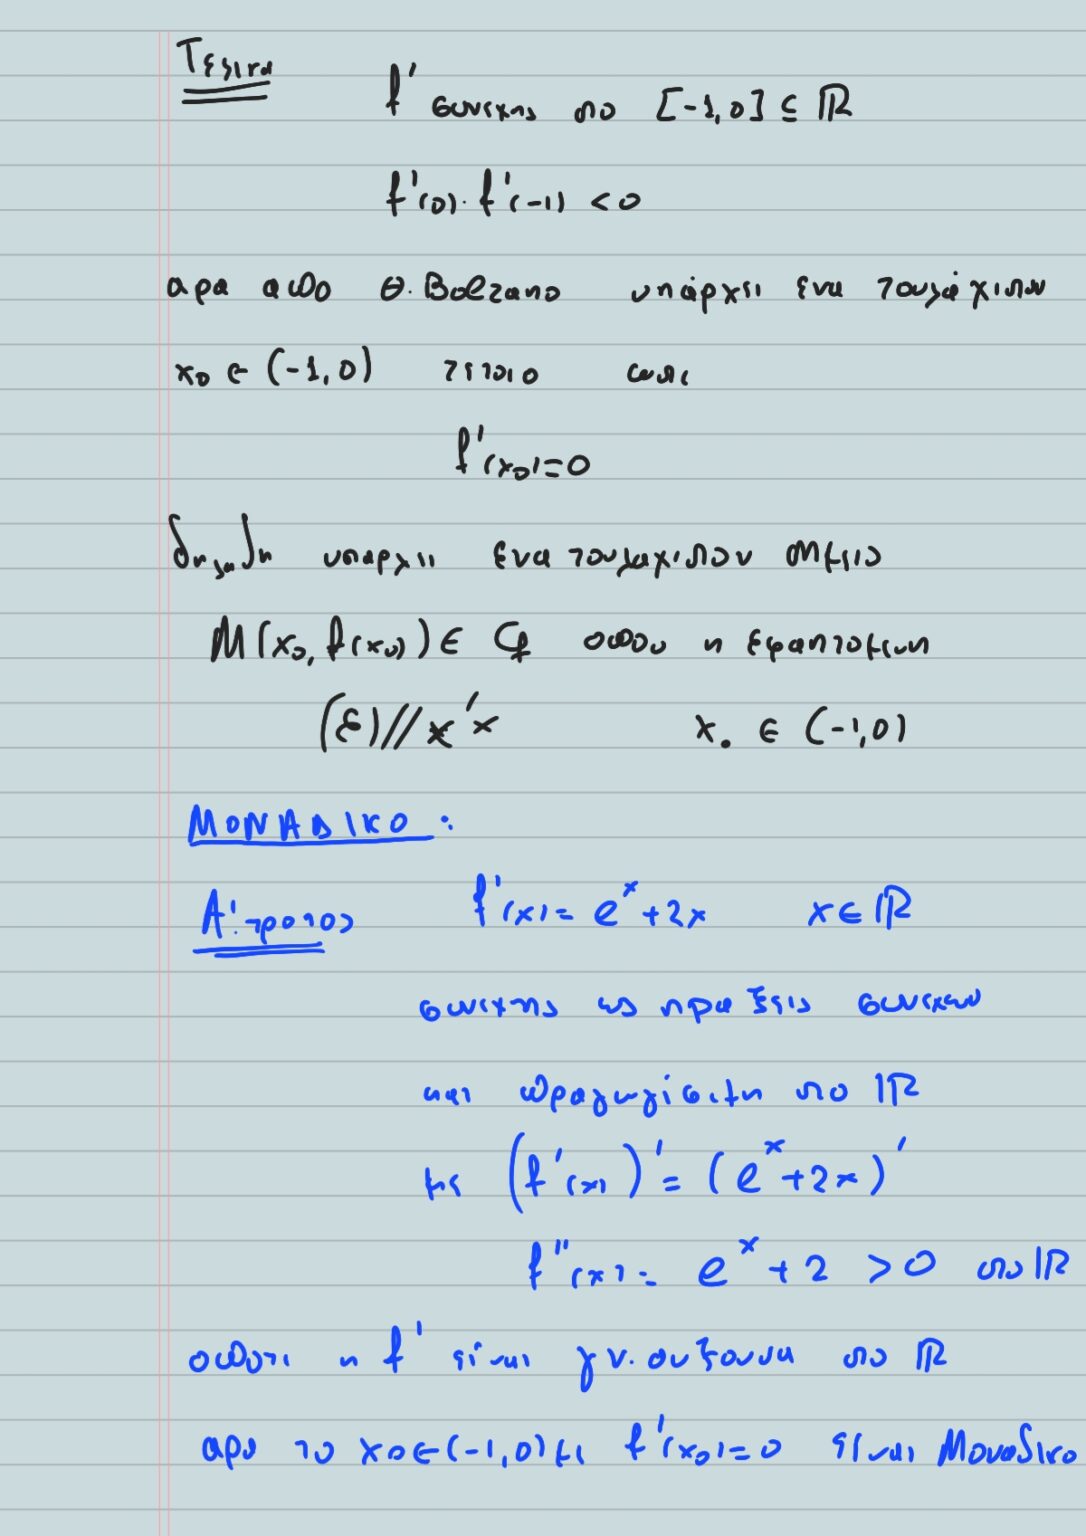 Τελικα
f' συνεχης στο [-1,0] ⊆ ℝ
f'(0)·f'(-1) <0
αρα απο Θ.Bolzano υπάρχει ενα τουλάχιστον
x₀ ∈ (-1,0) τετοιο ωστε
f'(x₀)=0
δηλαδη υπαρχει ενα τουλαχιστον σημειο
M(x₀, f(x₀)) ∈ Cf οπου η εφαπτομενη
(ε)//x'x x₀ ∈ (-1,0)
ΜΟΝΑΔΙΚΟ:
Α'.τροπος f'(x)= eˣ+2x x∈ℝ
συνεχης ως πραξεις συνεχων
και παραγωγισιμη στο ℝ
με (f'(x))'=(eˣ+2x)'
f''(x)= eˣ+2 >0 στο ℝ
οποτε η f' ειναι γν.αυξουσα στο ℝ
αρα το x₀∈(-1,0) με f'(x₀)=0 ειναι Μοναδικο